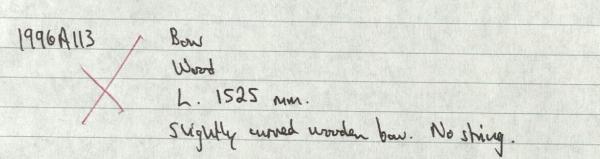 1996A113 Bow
Wood
L. 1525 mm.
Slightly curved wooden bow. No string.